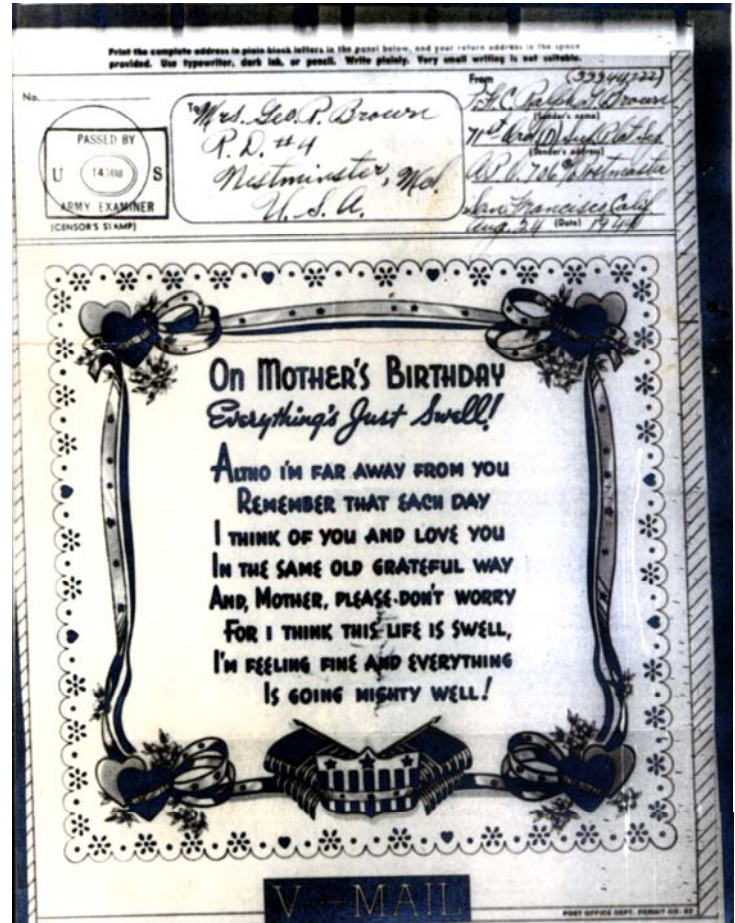 Print the complete address in plain block letters in the panel below, and your return address in the space
provided. Use typewriter, dark ink, or pencil. Write plainly. Very small writing is not suitable.
No.
PASSED BY
U S
ARMY EXAMINER
(CENSOR'S STAMP)
To
Mrs. Geo. P. Brown
R.D. #4
Westminster, Md.
U.S.A.
From (33944722)
Ralph Brown
(Sender's name)
71st Ord
(Sender's address)
A.P.O. 706 % Postmaster
San Francisco Calif
Aug. 24 (Date) 1944
On Mother's Birthday
Everything's Just Swell!
Altho I'm far away from you
Remember that each day
I think of you and love you
In the same old grateful way
And, Mother, please don't worry
For I think this life is swell,
I'm feeling fine and everything
Is going mighty well!
V - MAIL
POST OFFICE DEPT. PERMIT NO.